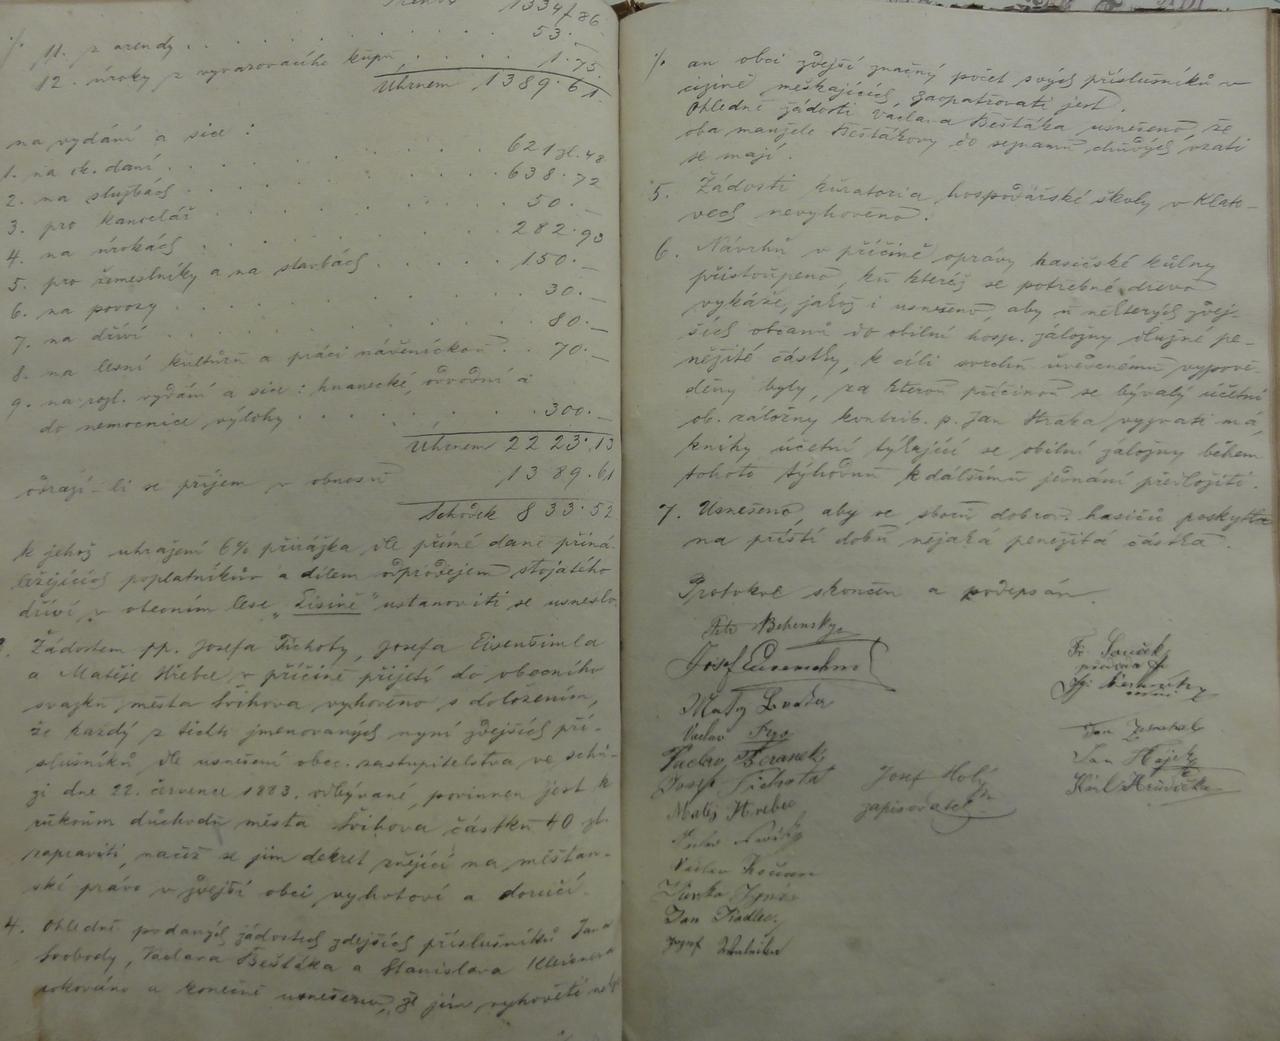 1334 86
./. 11. z arendy . . . . . . 53.—
12. úroky z vyvazovacího kupn. . . . 1.75.
Úhrnem 1389.61.
na vydání a sice:
1. na ck. daní . . . . . 621 zl. 48
2. na službách . . . . . 638.72
3. pro kancelář . . . . . 50.—
4. na úrokách . . . . . 282.93
5. pro řemeslníky a na stavbách . . . . 150.—
6. na povozy . . . . . 30.—
7. na dříví . . . . . 80.—
8. na lesní kulturu a práci nádenickou . . 70.—
9. na rozl. vydání a sice: hnanecké, odvodní a
do nemocnice výlohy . . . . . 300.—
Úhrnem 2223.13
odrazí-li se příjem v obnosu 1389.61
Schodek 833.52
k jehož uhražení 6% přirážka dle přímé daně přiná-
ležejících poplatníkův a dílem odprodejem stojatého
dříví v obecním lese „Lisině" ustanoviti se usneslo
Žádostem pp. Josefa Tichoty, Josefa Eisenšimla
a Matěje Hřebce v příčině přijetí do obecního
svazku města Švihova vyhověno s doložením,
že každý z těchto jmenovaných nyní zdejších pří-
slušníků dle usnešení obec. zastupitelstva ve schů-
zi dne 22. července 1883. odbývané, povinnen jest k
rukoum důchodu města Švihova částku 40 zl.
zapraviti, načež se jim dekret znějící na měšťan-
ské právo v zdejší obci vyhotoví a doručí.
4. Ohledně podaných žádostech zdejších příslušníků Jana
Svobody, Václava Bešťáka a Stanislava
rokováno a konečně usnešeno, že jim vyhověti
./. an obci zdejší značný počet svých příslušníků v
cizině meškajících, zaopatřovati jest.
Ohledně žádosti Václava Bešťáka usnešeno, že
oba manželé Bešťákovy do seznamu chudých vzati
se mají.
5. Žádosti kuratoria hospodářské školy v Klato-
vech nevyhověno.
6. Návrhu v příčině opravy hasičské kůlny
přistoupeno, ku kteréž se potřebné dřevo
vykáže, jakož i usnešeno, aby u některých zdej-
ších občanů do obilní hosp. záložny dlužné pe-
něžité částky, k cíli svrchu uvedenému vypově-
děny byly, za kterou příčinou se bývalý účetní
ob. záložny kontrib. p. Jan Straka vyzvati má,
knihy účetní týkající se obilní záložny během
tohoto týhodnu k dalšímu jednání předložiti.
7. Usnešeno, aby se sboru dobrov. hasičů poskytla
na příští dobu nějaká peněžitá částka.
Protokol skončen a podepsán.
Petr Behensky
Josef
Matěj
Václav
Václav Beranek
Josef Tichota
Matěj Hrebec
Václav Kočan
Jan Kadlec
Josef
Josef Holý
zapisovatel
Fr. Souček
Jan
Jan Hájek
Karl Hrdlička